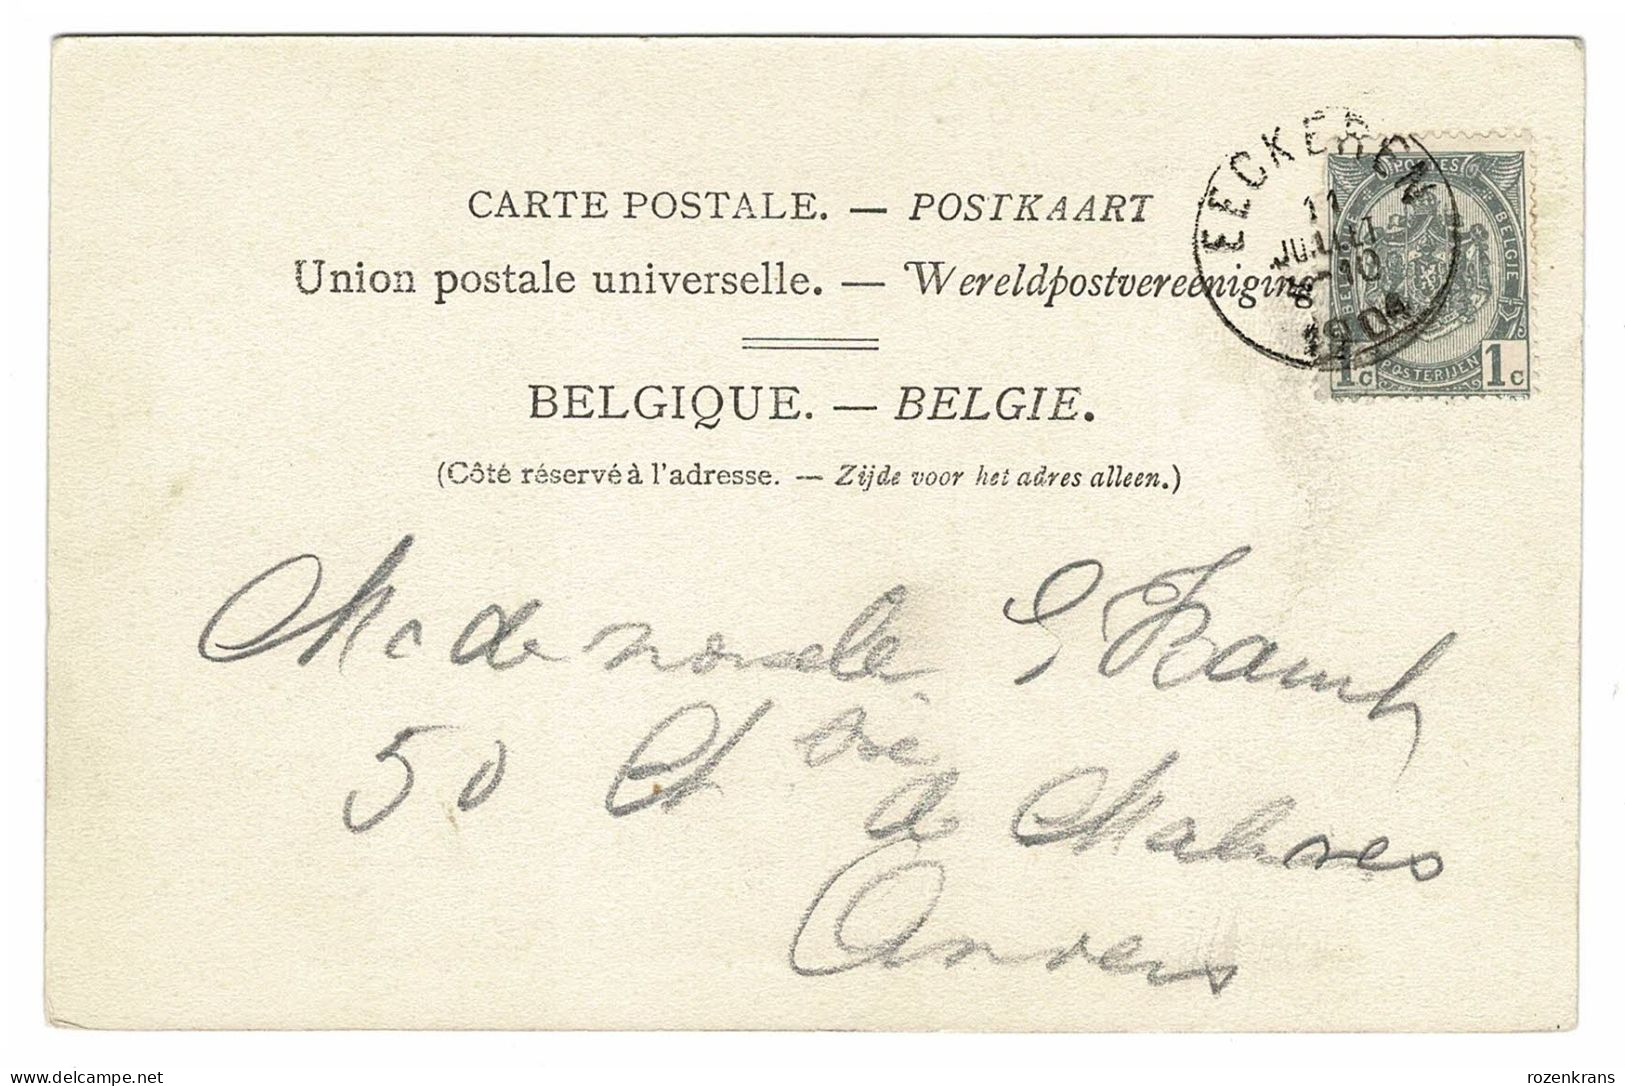 CARTE POSTALE. — POSTKAART
Union postale universelle. — Wereldpostvereeniging
BELGIQUE. — BELGIE.
(Côté réservé à l'adresse. — Zijde voor het adres alleen.)
EECKEREN
11
JUILLET
8-10
1904
POSTES
BELGIQUE
BELGIE
POSTERIJEN
1c 1c
Mademoiselle
50 Ch sée
de Malines
Anvers
rozenkrans